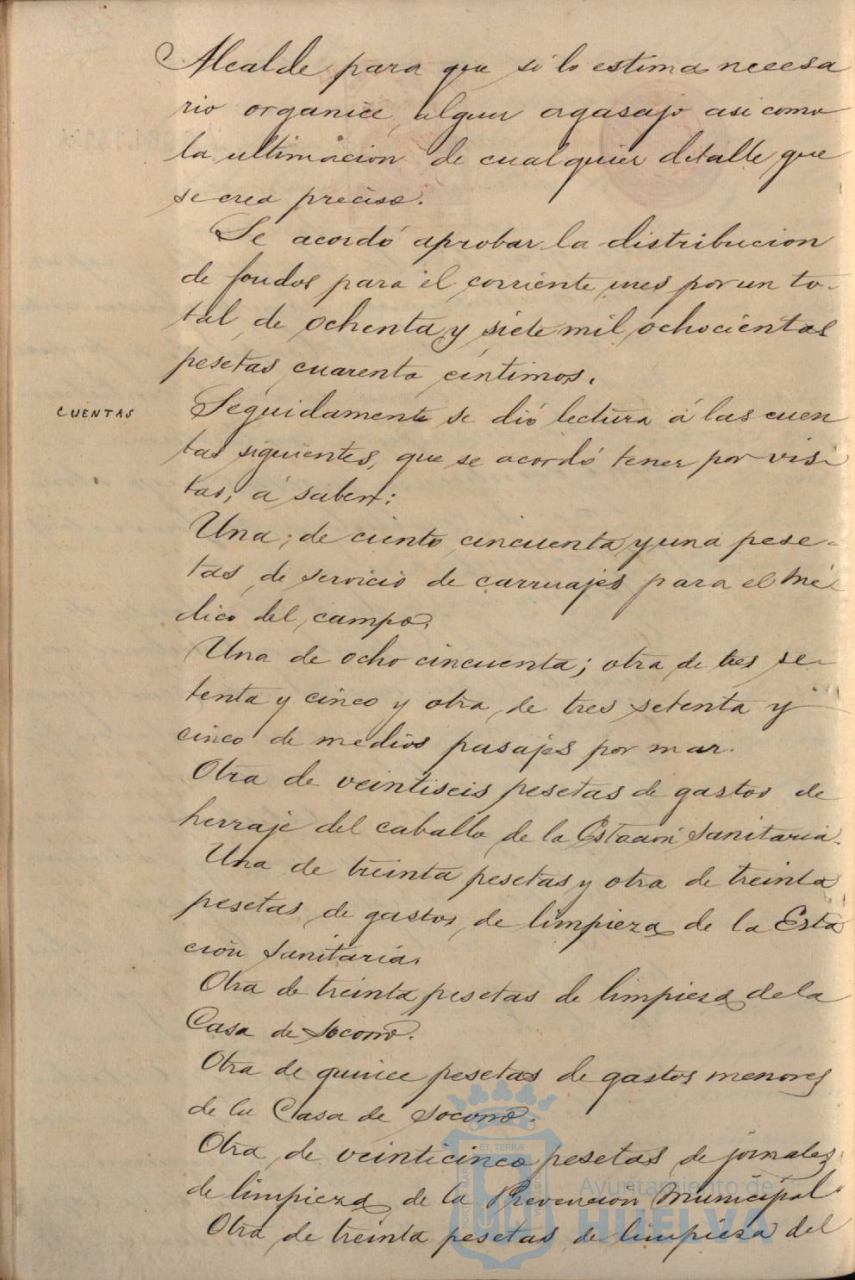 Alcalde para que si lo estima necesa
rio organice algun agasajo asi como
la ultimacion de cualquier detalle que
se crea preciso.
Se acordó aprobar la distribucion
de fondos para el corriente mes por un to-
tal de ochenta y siete mil ochocientas
pesetas cuarenta céntimos.
CUENTAS
Seguidamente se dió lectura á las cuen
tas siguientes, que se acordó tener por vis
tas, á saber:
Una; de ciento cincuenta y una pese-
tas de servicio de carruajes para el mé
dico del campo.
Una de ocho cincuenta; otra de tres se-
tenta y cinco y otra de tres setenta y
cinco de medios pasajes por mar.
Otra de veintiseis pesetas de gastos de
herraje del caballo de la Estación Sanitaria.
Una de treinta pesetas y otra de treinta
pesetas de gastos de limpieza de la Esta
ción Sanitaria.
Otra de treinta pesetas de limpieza de la
Casa de Socorro.
Otra de quince pesetas de gastos menores
de la Casa de Socorro.
Otra de veinticinco pesetas de jornales
de limpieza de la Prevención Municipal
Otra de treinta pesetas de limpieza del
ET TERRÆ
Ayuntamiento de
HUELVA